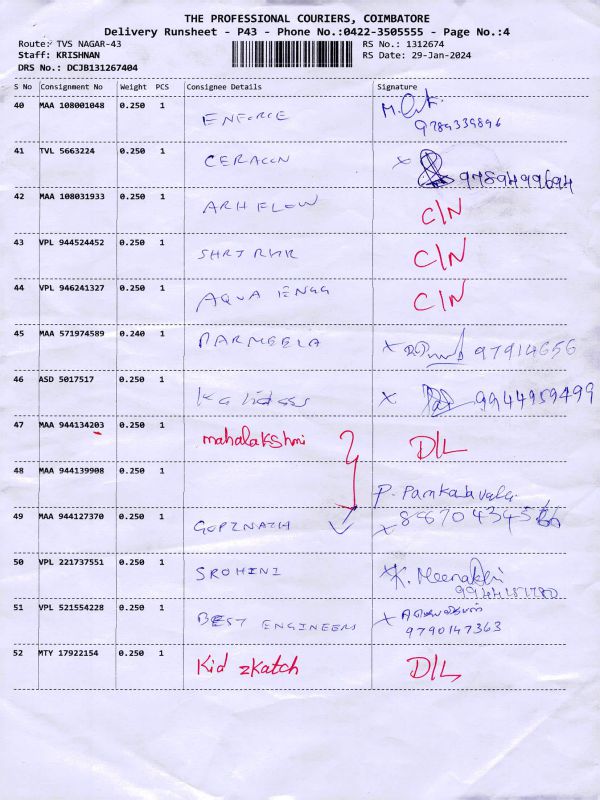 THE PROFESSIONAL COURIERS, COIMBATORE
Delivery Runsheet - P43 - Phone No.:0422-3505555 - Page No.:4
Route: TVS NAGAR-43 RS No.: 1312674
Staff: KRISHNAN RS Date: 29-Jan-2024
DRS No.: DCJB131267404
S No Consignment No Weight PCS Consignee Details Signature
40 MAA 108001048 0.250 1 ENFORCE
9789339896
41 TVL 5663224 0.250 1 x 9789499694
42 MAA 108031933 0.250 1 ARH FLOW C/N
43 VPL 944524452 0.250 1 C/N
44 VPL 946241327 0.250 1 AQUA ENGG C/N
45 MAA 571974589 0.240 1 x 97914656
46 ASD 5017517 0.250 1 Kalidass x 9944959499
47 MAA 944134203 0.250 1 mahalakshmi D/L
48 MAA 944139908 0.250 1
P.
49 MAA 944127370 0.250 1 GOPINATH x
50 VPL 221737551 0.250 1 SROHINI x K. Meenakshi
51 VPL 521554228 0.250 1 BEST ENGINEERS x
9790147363
52 MTY 17922154 0.250 1 Kid zkatch D/L